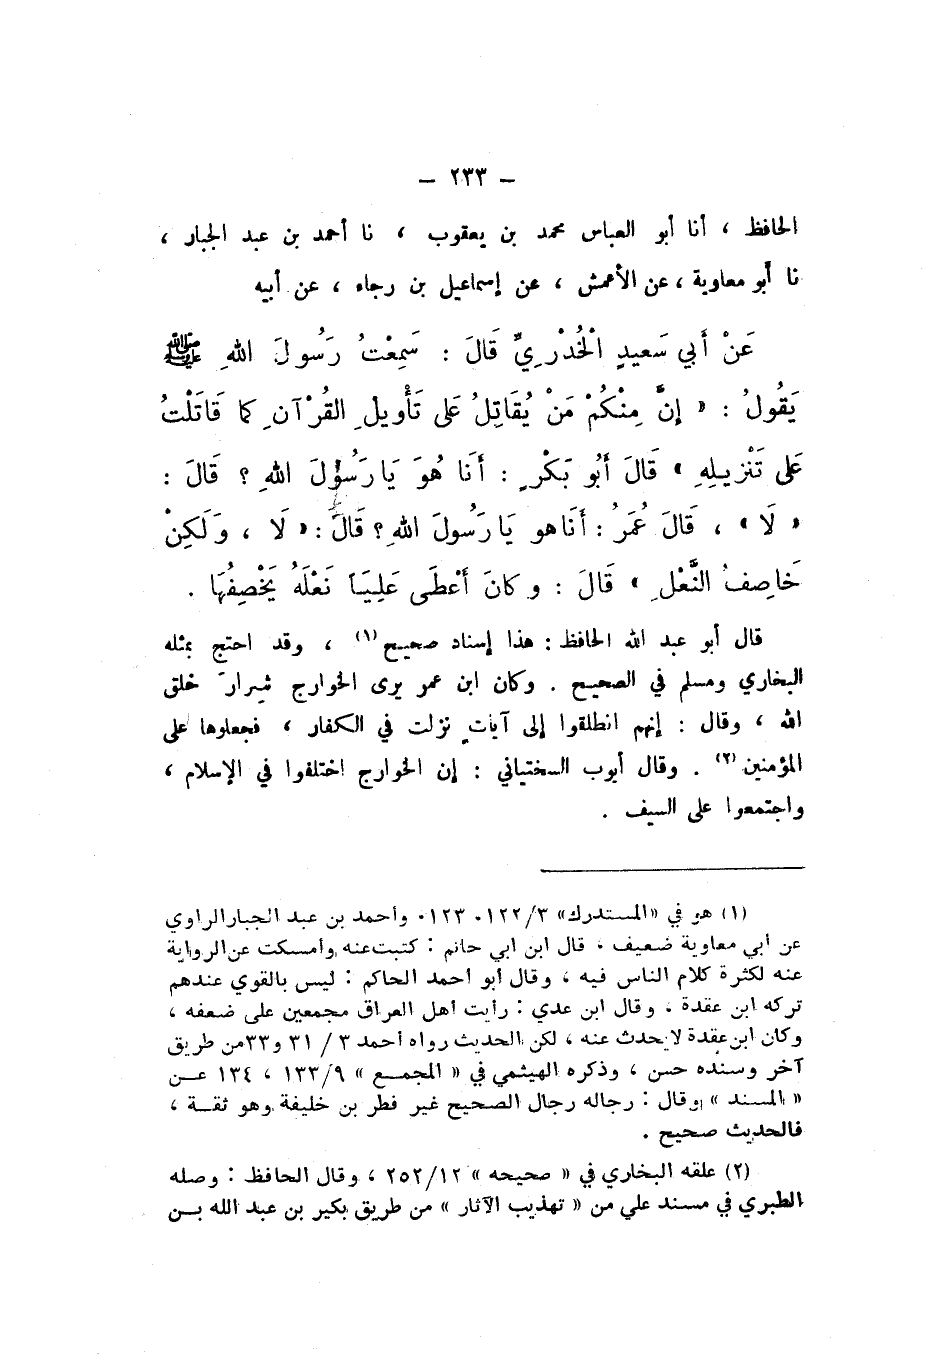 – ٢٣٣ –
الحافظ ، أنا أبو العباس محمد بن يعقوب ، نا أحمد بن عبد الجبار ،
نا أبو معاوية ، عن الأعمش ، عن إسماعيل بن رجاء ، عن أبيه
عَنْ أَبي سَعيدٍ الْخُدْرِيِّ قَالَ : سَمِعْتُ رَسُولَ اللهِ ﷺ
يَقُولُ : « إِنَّ مِنْكُمْ مَنْ يُقَاتِلُ عَلى تَأْوِيلِ القُرْآنِ كَما قَاتَلْتُ
عَلى تَنْزِيلِهِ » قَالَ أَبُو بَكْرٍ : أَنَا هُوَ يَا رَسُولَ اللهِ ؟ قَالَ :
« لَا » ، قَالَ عُمَرُ : أَنَا هو يَا رَسُولَ اللهِ ؟ قَالَ : « لَا ، وَلَكِنْ
خَاصِفُ النَّعْلِ » قَالَ : وكانَ أَعْطَى عَلِيَّاً نَعْلَهُ يَخْصِفُهَا .
قال أبو عبد الله الحافظ : هذا إسناد صحيح (١) ، وقد احتج بمثله
البخاري ومسلم في الصحيح . وكان ابن عمر يرى الخوارج شِرارَ خلق
الله ، وقال : إنهم انطلقوا إلى آياتٍ نزلت في الكفار ، فجعلوها على
المؤمنين (٢) . وقال أيوب السختياني : إن الخوارج اختلفوا في الإسلام ،
واجتمعوا على السيف .
(١) هو في «المستدرك» ٣/١٢٢، ١٢٣، وأحمد بن عبد الجبار الراوي
عن أبي معاوية ضعيف ، قال ابن ابي حاتم : كتبت عنه وأمسكت عن الرواية
عنه لكثرة كلام الناس فيه ، وقال أبو أحمد الحاكم : ليس بالقوي عندهم
تركه ابن عقدة ، وقال ابن عدي : رأيت أهل العراق مجمعين على ضعفه ،
وكان ابن عقدة لا يحدث عنه ، لكن الحديث رواه أحمد ٣ / ٣١ و٣٣من طريق
آخر وسنده حسن ، وذكره الهيثمي في « المجمع » ٩/١٣٣ ، ١٣٤ عن
« المسند » وقال : رجاله رجال الصحيح غير فطر بن خليفة وهو ثقة ،
فالحديث صحيح .
(٢) علقه البخاري في « صحيحه » ١٢/٢٥٢ ، وقال الحافظ : وصله
الطبري في مسند علي من « تهذيب الآثار » من طريق بكير بن عبد الله بن